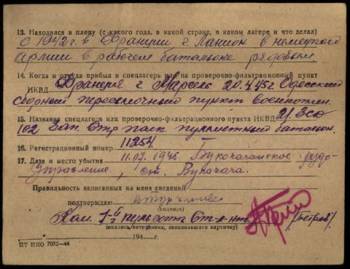 13. Находился в плену (с какого года, в какой стране, в каком лагере и что делал)
С 1942 г. в Франции г. Ланион в немецкой
Армии в рабочем батальоне рядовым.
14. Когда и откуда прибыл в спецлагерь или на проверочно-фильтрационный пункт
НКВД Франция г. Марсель 20.4.45 г. Одесский
сборный пересыльный пункт военноплен.
15. Название спецлагеря или проверочно-фильтрационного пункта НКВД
102 Зап. Стр. полк пулеметный батальон.
16. Регистрационный номер 11254
17. Дата и место убытия 11.07.1946
управление, ст.
Правильность записанных на меня сведений
подтверждаю
(подпись)
Ком. 1-й пульроты Ст. л-нт
194 г.
ПТ НКО 7072—44